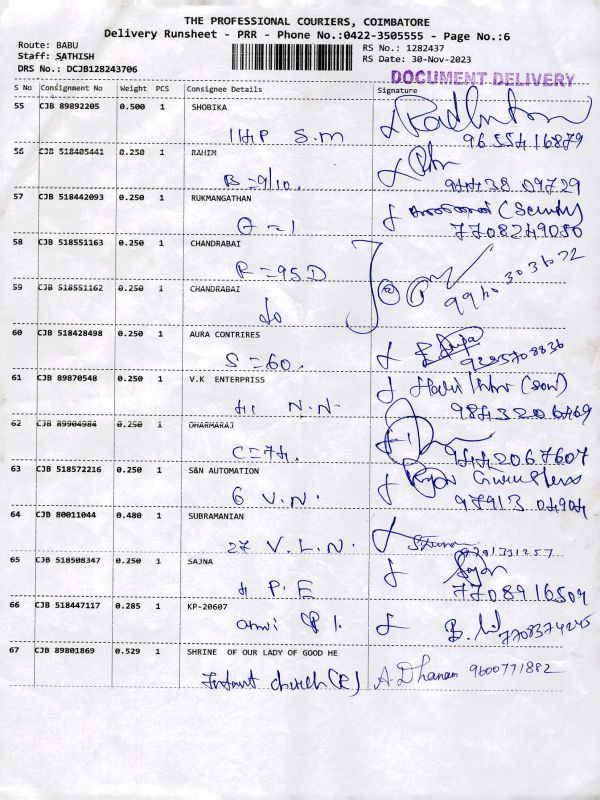 THE PROFESSIONAL COURIERS, COIMBATORE
Delivery Runsheet - PRR - Phone No.:0422-3505555 - Page No.:6
Route: BABU
RS No.: 1282437
Staff: SATHISH
RS Date: 30-Nov-2023
DRS No.: DCJB128243706
DOCUMENT DELIVERY
S No Consignment No Weight PCS Consignee Details Signature
55 CJB 89892205 0.500 1 SHOBIKA
114P S.M
96554 16879
56 CJB 518405441 0.250 1 RAHIM
B=9/10.
94438 09729
57 CJB 518442093 0.250 1 RUKMANGATHAN
G=1 (Security)
7708249050
58 CJB 518551163 0.250 1 CHANDRABAI
R=95D
59 CJB 518551162 0.250 1 CHANDRABAI
do
60 CJB 518428498 0.250 1 AURA CONTRIRES
S=60.
61 CJB 89870548 0.250 1 V.K ENTERPRISS
41 N.N. (Son)
9843206469
62 CJB 89904984 0.250 1 DHARMARAJ
C=74.
9442067607
63 CJB 518572216 0.250 1 S&N AUTOMATION
6 V.N.
97913 04904
64 CJB 80011044 0.480 1 SUBRAMANIAN
27 V.L.N.
65 CJB 518508347 0.250 1 SAJNA
4 P.E
7708916504
66 CJB 518447117 0.285 1 KP-20607
7708374245
67 CJB 89801869 0.529 1 SHRINE OF OUR LADY OF GOOD HE
Infant church (R) A. Dhanam 9600771882